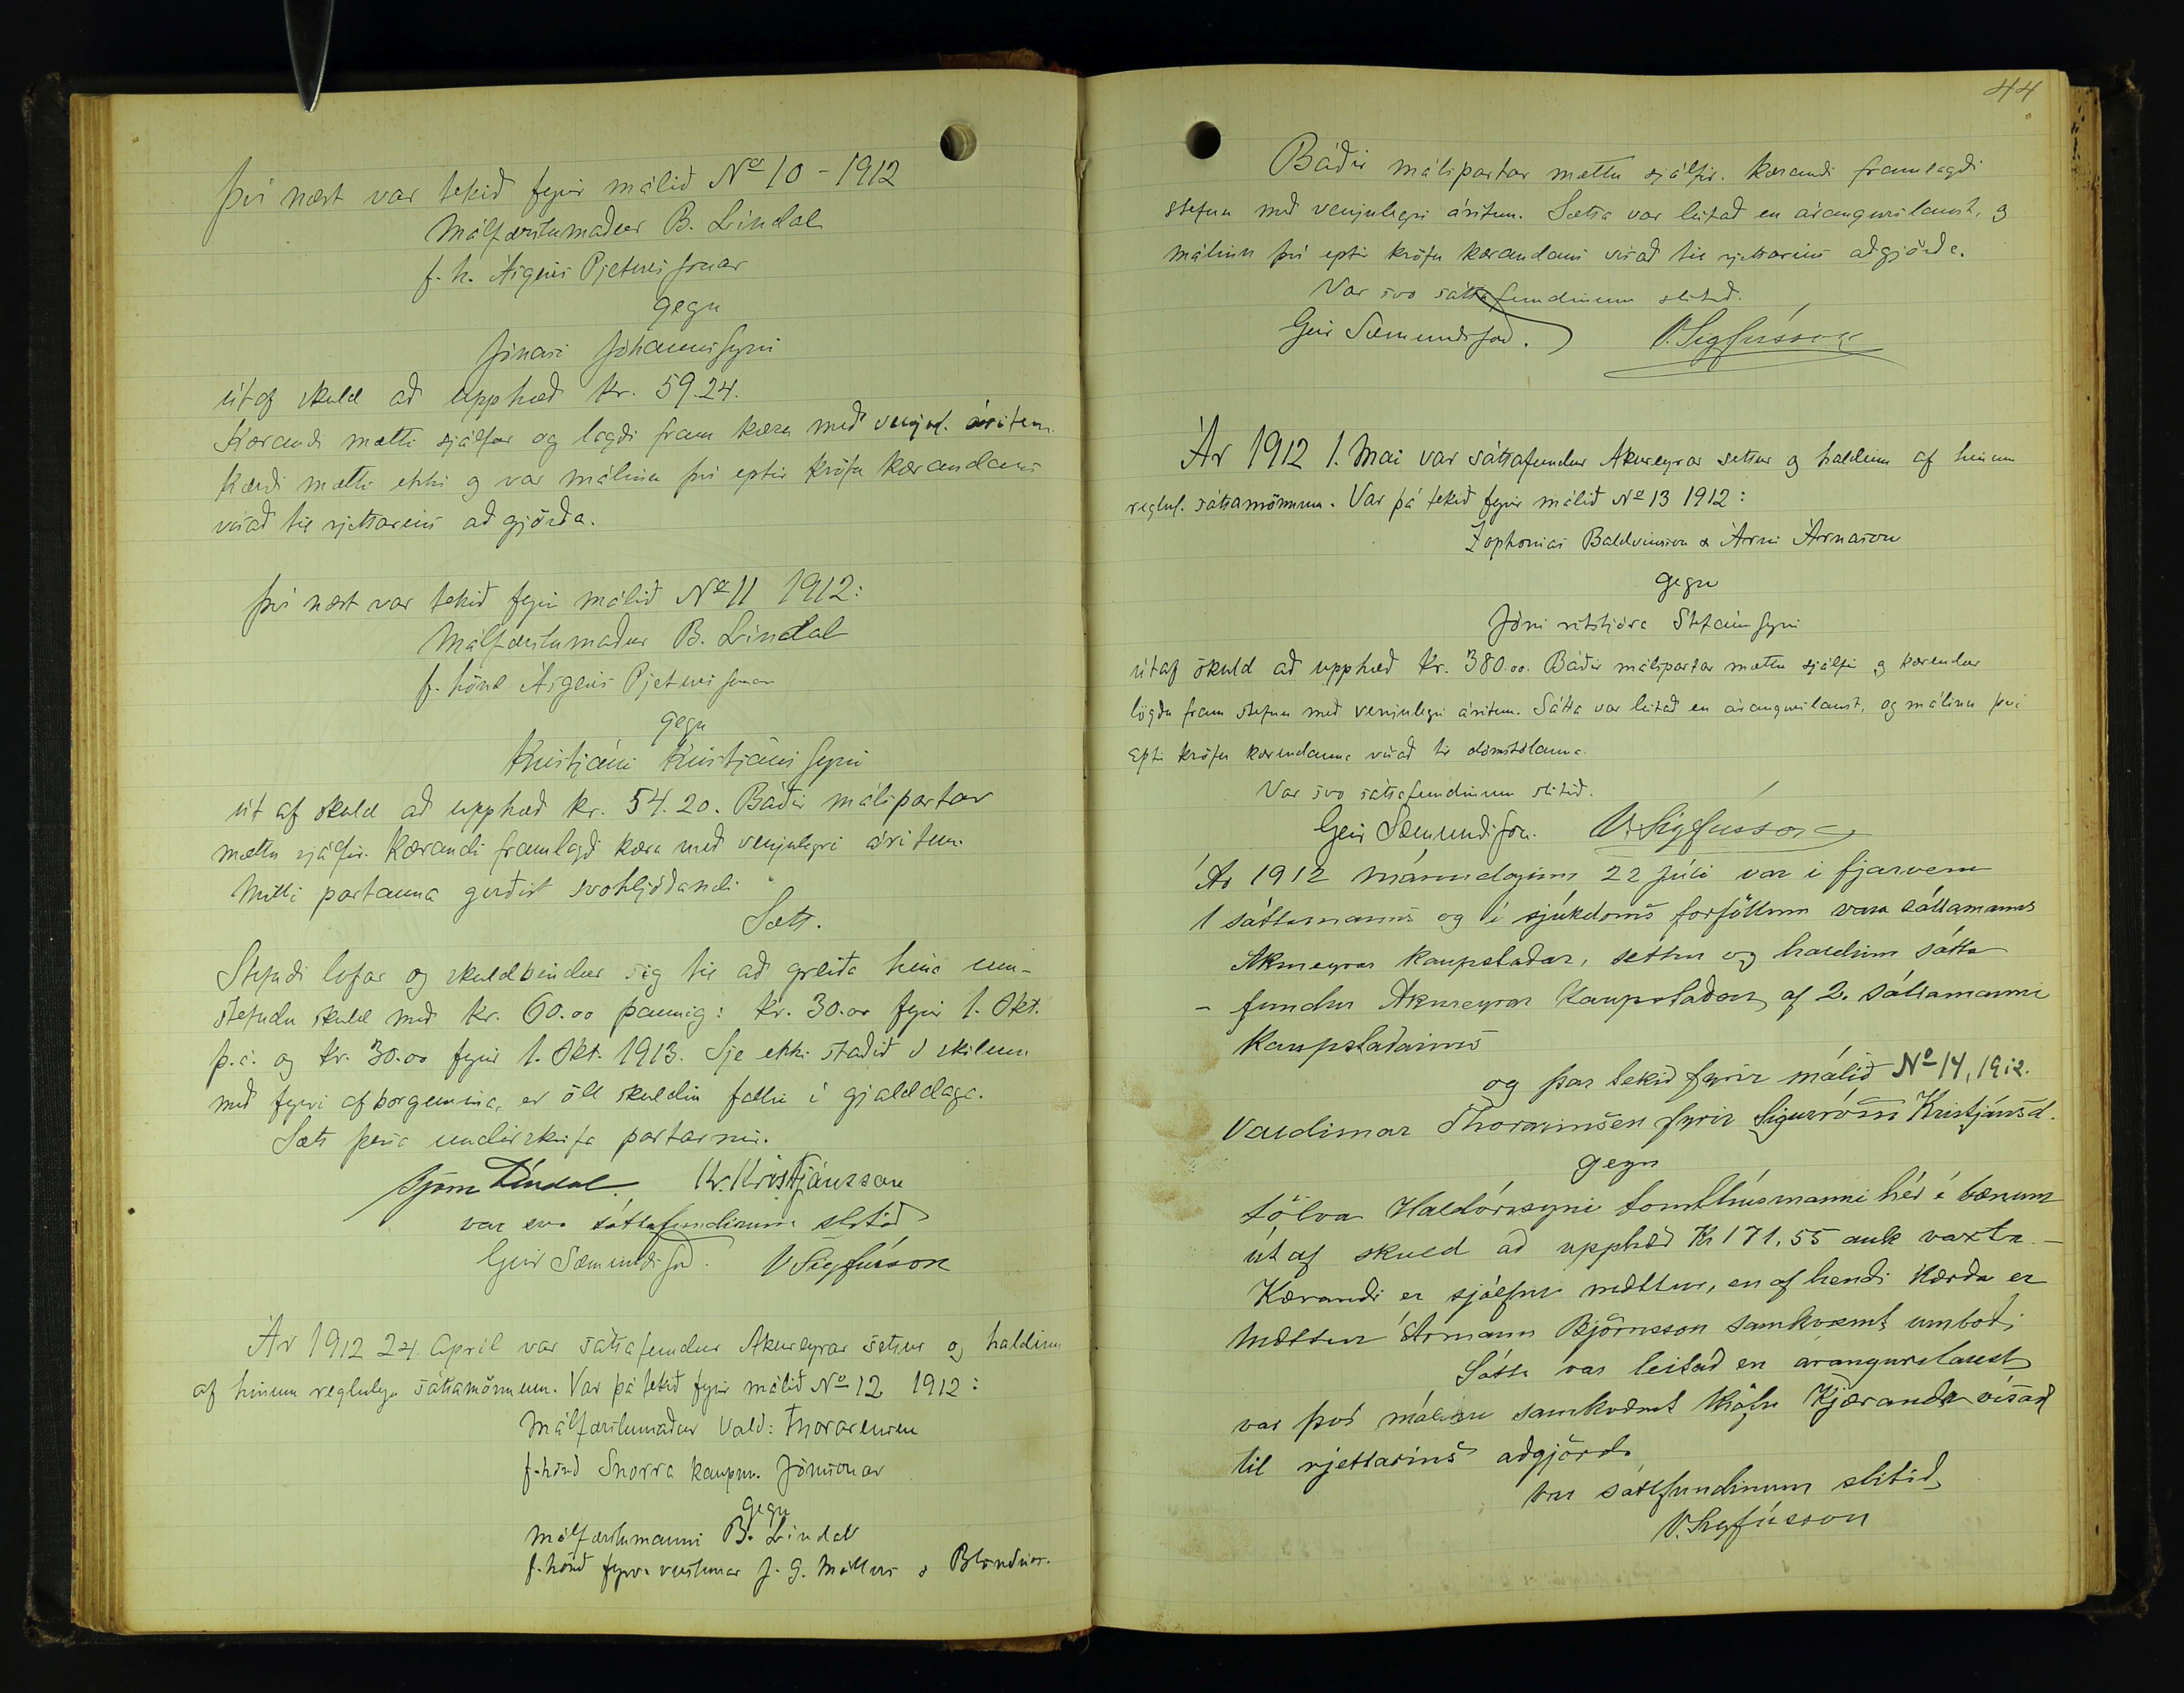 Því næst var tekið fyrir málið No 10 - 1912
Málfærslumaður B. Líndal
f. h. Ásgeirs Pjeturssonar
gegn
Jónasi Jóhannssyni
útaf skuld að upphæð kr. 59.24.
Kærandi mætti sjálfur og lagði fram kæru með venjul. áritun.
Kærði mætti ekki og var málinu því eptir kröfu kærandans
vísað til rjettarins aðgjörða.
Því næst var tekið fyrir málið No 11 1912:
Málfærslumaður B. Líndal
f. hönd Ásgeirs Pjeturssonar
gegn
Kristjáni Kristjánssyni
út af skuld að upphæð kr. 54.20. Báðir málspartar
mættu sjálfir. Kærandi framlagði kæru með venjulegri áritun.
Milli partanna gerðist svohljóðandi
Sætt.
Stefndi lofar og skuldbindur sig til að greiða hina um-
stefndu skuld með kr. 60.00 þannig: kr. 30.00 fyrir 1. Okt.
þ.á. og kr. 30.00 fyrir 1. Okt. 1913. Sje ekki staðið í skilum
með fyrri afborgunina, er öll skuldin fallin í gjalddaga.
Sætt þessa undirskrifa partarnir.
Björn Líndal. Kr. Kristjánsson
var svo sáttafundinum slitið
Geir Sæmundsson. V Sigfússon
Ár 1912 24. April var sáttafundur Akureyrar settur og haldinn
af hinum reglulegu sáttamönnum. Var þá tekið fyrir málið No 12 1912:
Málfærslumaður Vald: Thorarensen
f. hönd Snorra kaupm. Jónssonar
gegn
málfærslumanni B. Líndal
f. hönd fyrv. verslunar J. G. Möllers á Blönduós.
44
Báðir málspartar mættu sjálfir. Kærandi framlagði
stefnu með venjulegri áritun. Sætta var leitað en árangurslaust, og
málinu því eptir kröfu kærandans vísað til rjettarins aðgjörða.
Var svo sáttafundinum slitið.
Geir Sæmundsson. V. Sigfússon
Ár 1912 1. Mai var sáttafundur Akureyrar settur og haldinn af hinum
reglul. sáttamönnum. Var þá tekið fyrir málið No 13 1912:
Zophonías Baldvinsson & Árni Árnason
gegn
Jóni ritstjóra Stefánssyni
útaf skuld að upphæð kr. 380.00. Báðir málspartar mættu sjálfir og kærendur
lögðu fram stefnu með venjulegri áritun. Sátta var leitað en árangurslaust, og málinu því
eptir kröfu kærendanna vísað til dómstólanna.
Var svo sáttafundinum slitið.
Geir Sæmundsson. V. Sigfússon
Ár 1912 mánudaginn 22 Júli var i fjarveru
1 sáttamanns og i sjúkdoms forföllum vara sáttamanns
Akureyrar kaupstaðar, settur og haldinn sátta
- fundur Akureyrar Kaupstaðar, af 2. sáttamanni
Kaupstaðarins
og þar tekið fyrir málið No 14, 1912.
Valdimar Thorarinsen fyrir Sigurrósu Kristjánsd.
gegn
Sölva Haldórssyni tomthúsmanni hér í bænum
út af skuld að upphæð Kr 171,55 auk vaxta. -
Kærandi er sjálfur mættur, en af hendi Kærða er
mættur Ármann Björnsson samkvæmt umboði
Sátta var leitað en árangurslaust
var því málinu samkvæmt kröfu Kjæranda vísað
til rjettarins aðgjörða
var sáttfundinum slitið,
V. Sigfússon